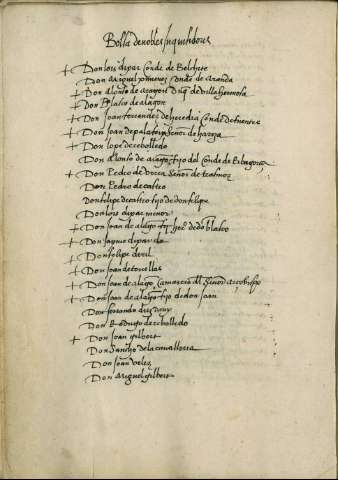 Bolsa de nobles Inquisidores
+ Don lois dixar Conde de Belchite
Don Miguel ximenez Conde de Aranda
+ Don Alonso de aragon duq de villa hermosa
+ Don Blasco de alagon
+ Don Joan fernandez de heredia Conde de fuentes
+ Don Joan de palafox Señor de hariza
+ Don lope de rebolledo
Don Alonso de aragon fijo del Conde de Ribagorça
+ Don Pedro de Señor de trasmoz
Don Pedro de castro
Don felipe de castro fijo de don felipe
Don lois dixar menor
+ Don Joan de alagon fijo de do blasco
+ Don Jayme dixar
+ Don felipe
+ Don Joan de torrellas
+ Don Joan de alagon Camarero del Señor arçobispo
+ Don Joan de alagon fijo de don Joan
Don fernando
Don Rodrigo de rebolledo
+ Don Joan gilbert
Don Sancho de la cavalleria
Don Joan
Don Miguel gilbert